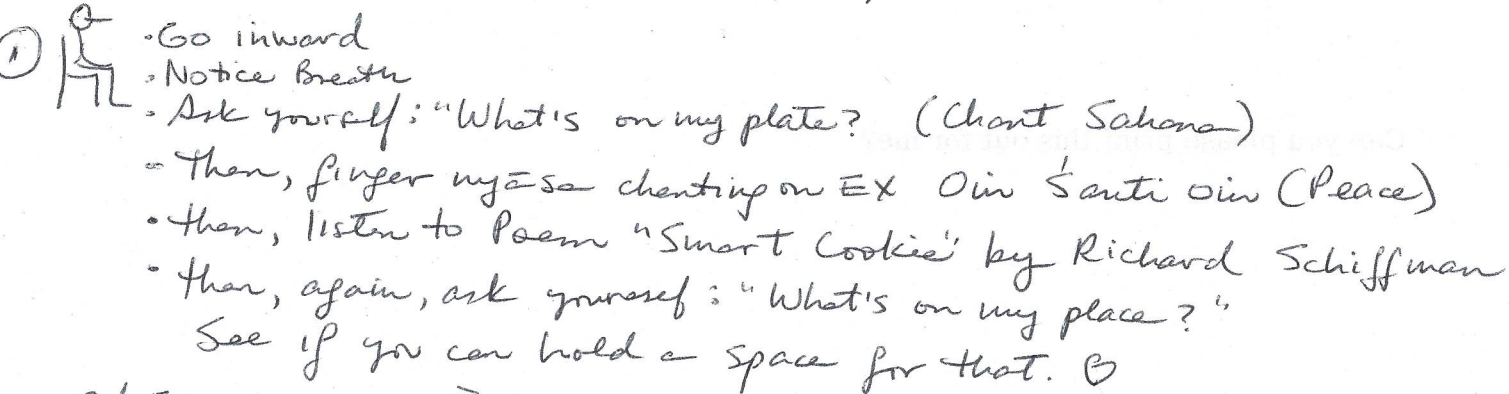 1
· Go inward
· Notice Breath
· Ask yourself: "What's on my plate? (Chant Sahana)
- Then, finger nyāsa chanting on EX Oiṁ Śanti oiṁ (Peace)
· then, listen to Poem "Smart Cookie" by Richard Schiffman
· then, again, ask yourself: "What's on my place?"
See if you can hold a space for that.